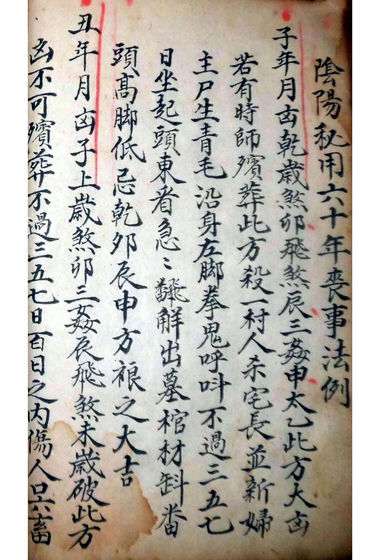 陰陽秘用六十年喪事法例
子年月凶乾歲煞卯飛煞辰三姦申太乙此方大凶
若有時師殯葬此方殺一村人杀宅長並新婦
主尸生青毛沿身左脚拳鬼呼呌不過三五七
日坐起頭東者急〻飜解出墓棺材斜番
頭髙脚低忌乾卯辰申方裉之大吉
丑年月凶子上歲煞卯三姦辰飛煞未歲破此方
凶不可殯葬不過三五七日百日之内傷人口六畜